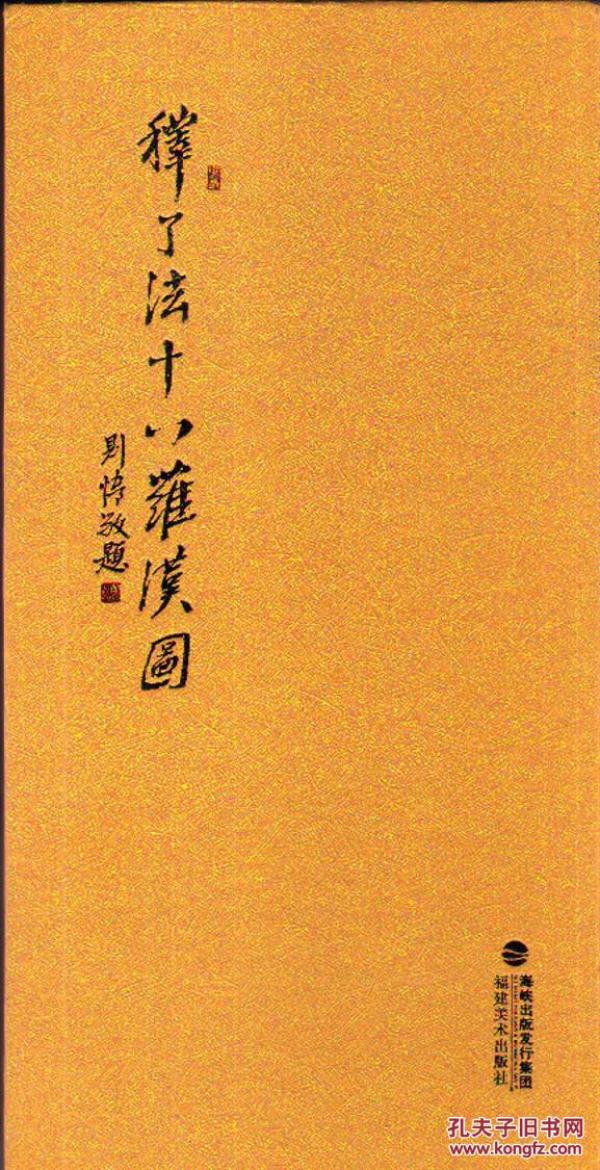 釋了法十八羅漢圖
敬題
海峡出版发行集团
福建美术出版社
孔夫子旧书网
www.kongfz.com